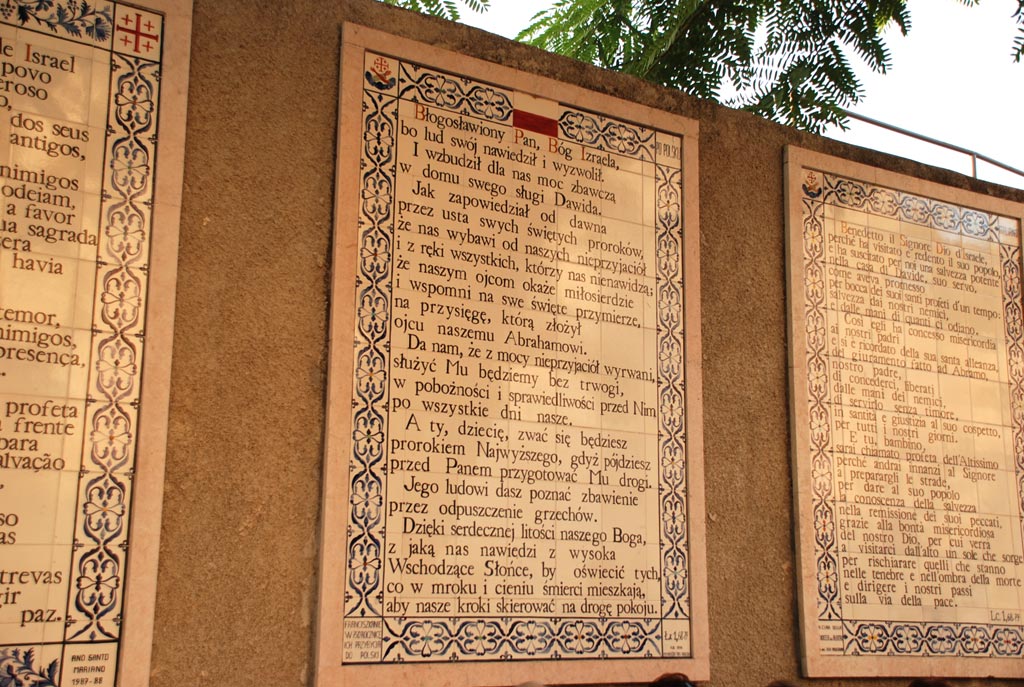 de Israel
povo
eroso
dos seus
antigos,
nimigos
odeiam,
a favor
ua sagrada
sera
havia
temor,
nimigos,
presença,
profeta
a frente
para
alvação
so
as
trevas
gir
paz.
ANO SANTO
MARIANO
1987-88
Błogosławiony Pan, Bóg Izraela,
bo lud swój nawiedził i wyzwolił.
I wzbudził dla nas moc zbawczą
w domu swego sługi Dawida.
Jak zapowiedział od dawna
przez usta swych świętych proroków,
że nas wybawi od naszych nieprzyjaciół
i z ręki wszystkich, którzy nas nienawidzą;
że naszym ojcom okaże miłosierdzie
i wspomni na swe święte przymierze,
na przysięgę, którą złożył
ojcu naszemu Abrahamowi.
Da nam, że z mocy nieprzyjaciół wyrwani,
służyć Mu będziemy bez trwogi,
w pobożności i sprawiedliwości przed Nim
po wszystkie dni nasze.
A ty, dziecię, zwać się będziesz
prorokiem Najwyższego, gdyż pójdziesz
przed Panem przygotować Mu drogi.
Jego ludowi dasz poznać zbawienie
przez odpuszczenie grzechów.
Dzięki serdecznej litości naszego Boga,
z jaką nas nawiedzi z wysoka
Wschodzące Słońce, by oświecić tych,
co w mroku i cieniu śmierci mieszkają,
aby nasze kroki skierować na drogę pokoju.
PO POLSKU
FRANCISZKANIE
W 750 ROCZNICĘ
ICH PRZYBYCIA
DO POLSKI
Łk 1,68-79
Benedetto il Signore Dio d'Israele,
perché ha visitato e redento il suo popolo,
ha suscitato per noi una salvezza potente
nella casa di Davide, suo servo,
come aveva promesso
per bocca dei suoi santi profeti d'un tempo:
salvezza dai nostri nemici,
e dalle mani di quanti ci odiano.
Così egli ha concesso misericordia
ai nostri padri
e si è ricordato della sua santa alleanza,
del giuramento fatto ad Abramo,
nostro padre,
di concederci, liberati
dalle mani dei nemici,
di servirlo senza timore,
in santità e giustizia al suo cospetto,
per tutti i nostri giorni.
E tu, bambino,
sarai chiamato profeta dell'Altissimo
perché andrai innanzi al Signore
a preparargli le strade,
per dare al suo popolo
la conoscenza della salvezza
nella remissione dei suoi peccati,
grazie alla bontà misericordiosa
del nostro Dio, per cui verrà
a visitarci dall'alto un sole che sorge
per rischiarare quelli che stanno
nelle tenebre e nell'ombra della morte
e dirigere i nostri passi
sulla via della pace.
Lc 1,68-79